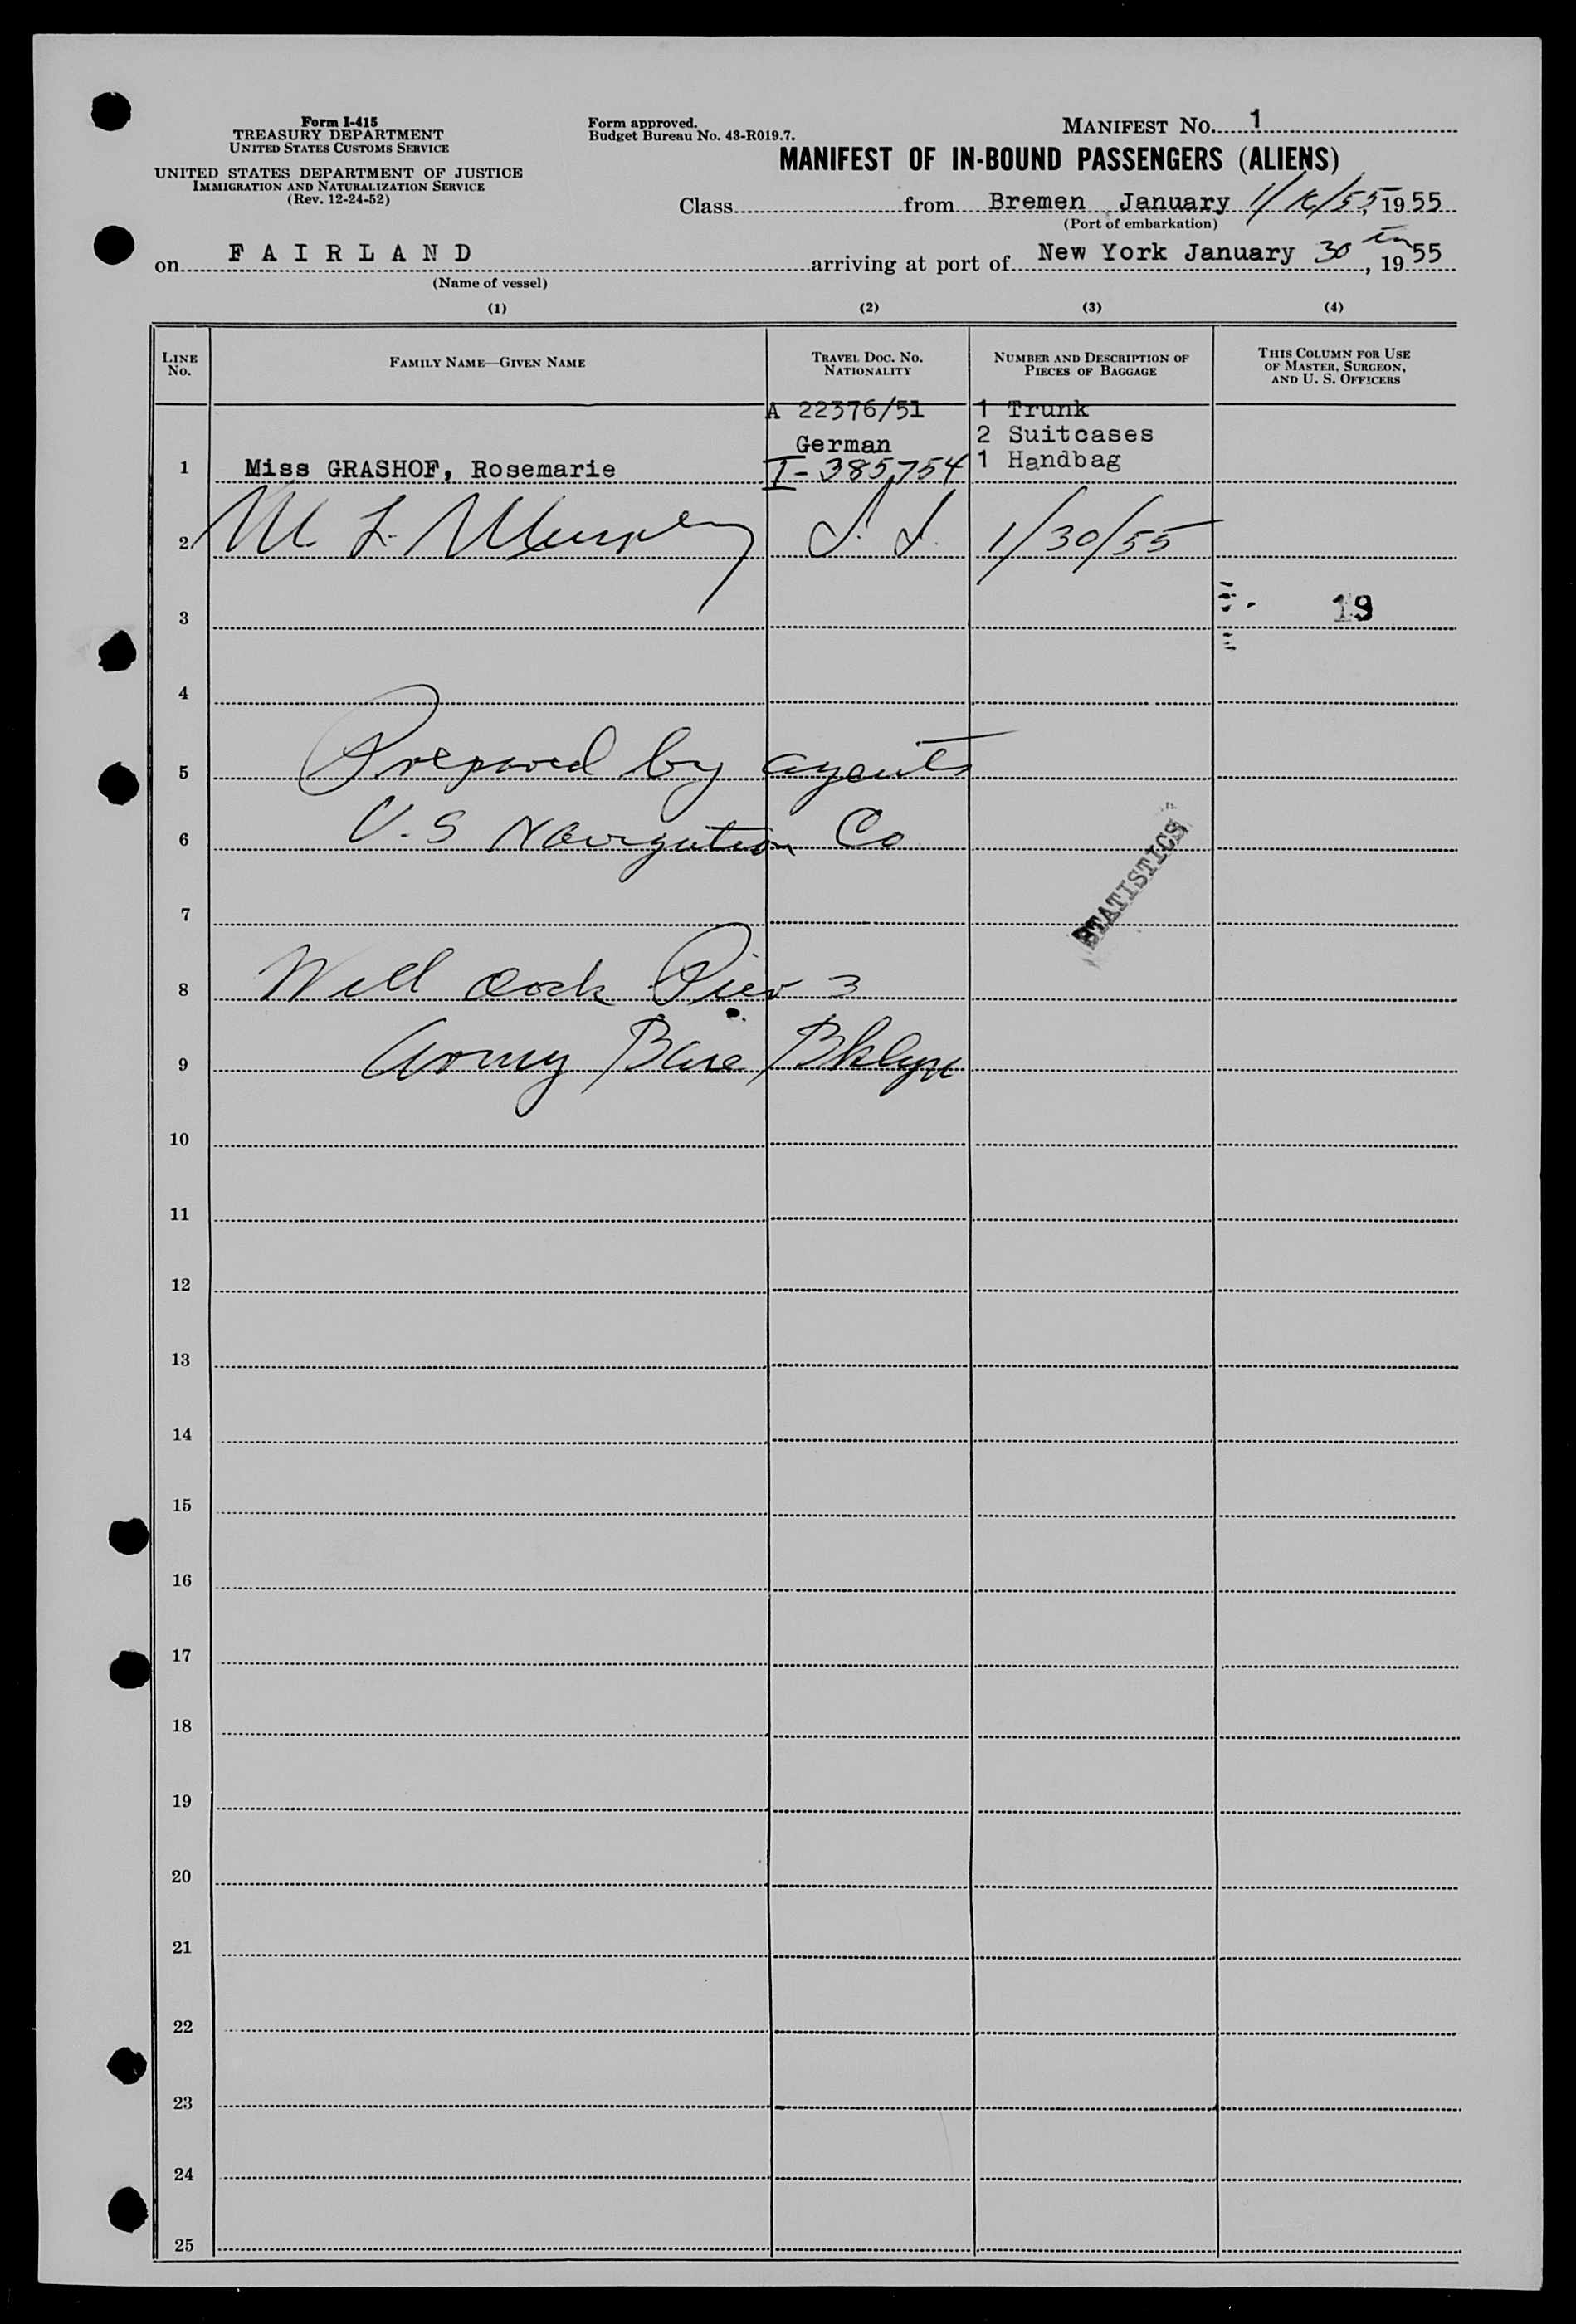 Form I-415
TREASURY DEPARTMENT
UNITED STATES CUSTOMS SERVICE
UNITED STATES DEPARTMENT OF JUSTICE
IMMIGRATION AND NATURALIZATION SERVICE
(Rev. 12-24-52)
Form approved.
Budget Bureau No. 43-R019.7.
MANIFEST NO. 1
MANIFEST OF IN-BOUND PASSENGERS (ALIENS)
Class from Bremen January , 1955
(Port of embarkation)
on FAIRLAND arriving at port of New York January 30th, 1955
(Name of vessel)
(1) (2) (3) (4)
LINE NO. FAMILY NAME—GIVEN NAME TRAVEL DOC. NO. NATIONALITY NUMBER AND DESCRIPTION OF PIECES OF BAGGAGE THIS COLUMN FOR USE OF MASTER, SURGEON, AND U. S. OFFICERS
A 22376/51 1 Trunk
German 2 Suitcases
1 Miss GRASHOF, Rosemarie I-385754 1 Handbag
2 M L. Murphy 1/30/55
3 19
4
5 Prepared by agents
6 U.S Navigation Co
STATISTICS
7
8 Will dock Pier 3
9 Army Base Bklyn
10
11
12
13
14
15
16
17
18
19
20
21
22
23
24
25